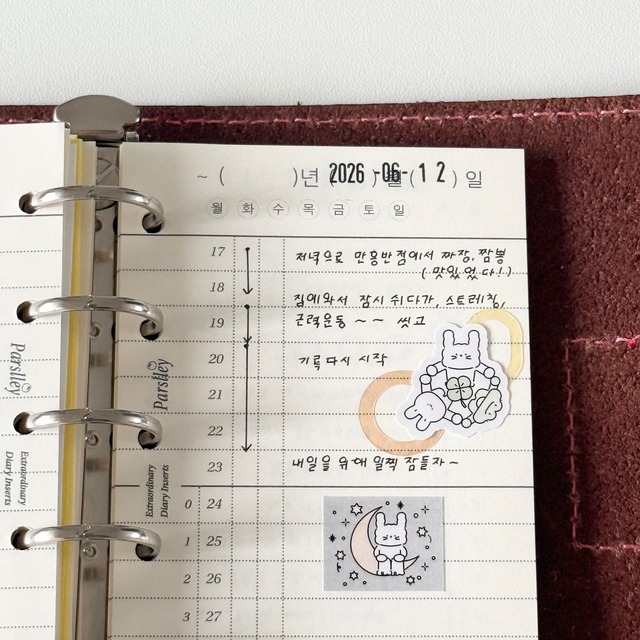 ~ ( )년 2026 -06- 1 2 ) 일
월 화 수 목 금 토 일
17 저녁으로 만흥반점에서 짜장, 짬뽕
(맛있었다!)
18
집에와서 잠시 쉬다가, 스트레칭,
19 근력운동 ~ ~ 씻고
20 기록 다시 시작
21
22
23 내일을 위해 일찍 잠들자 ~
0 24
1 25
2 26
3 27
Parslley
Extraordinary
Diary Inserts
Parslley
Extraordinary
Diary Inserts